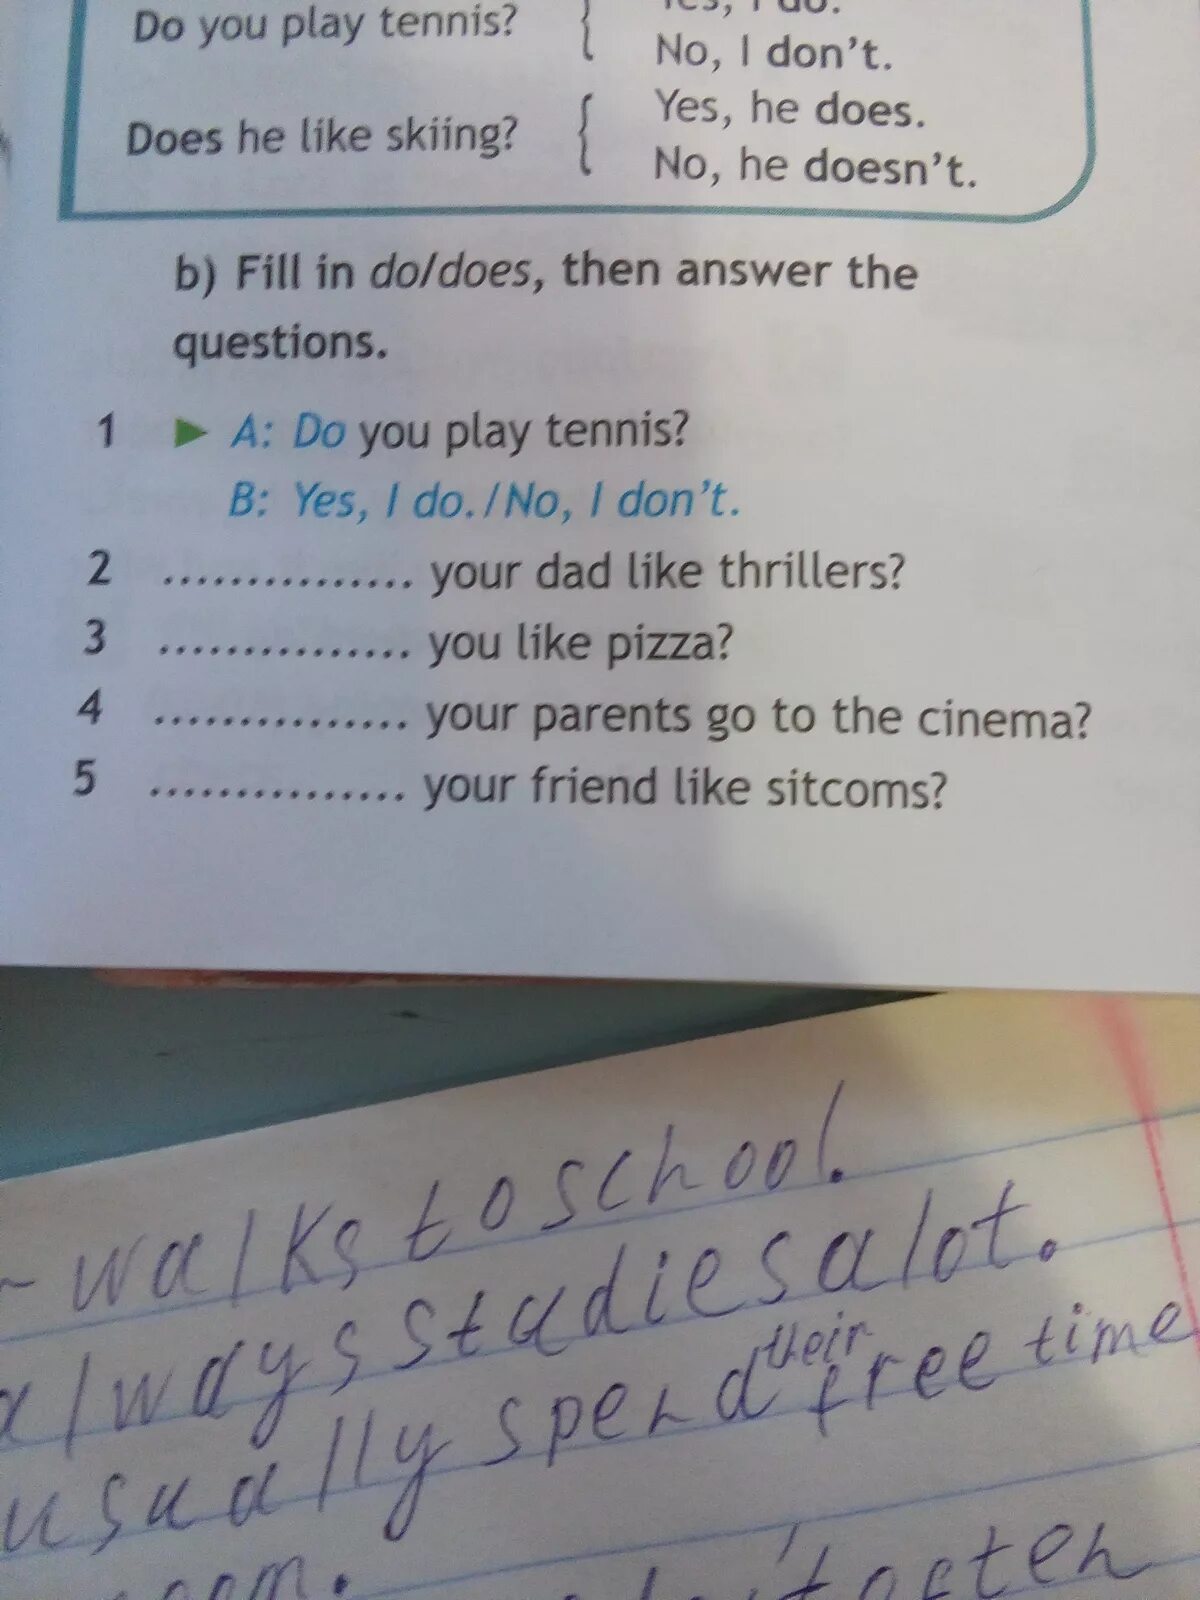 Do you play tennis?
Yes, I do.
No, I don't.
Does he like skiing?
Yes, he does.
No, he doesn't.
b) Fill in do/does, then answer the
questions.
1 ► A: Do you play tennis?
B: Yes, I do./No, I don't.
2 ............... your dad like thrillers?
3 ............... you like pizza?
4 ............... your parents go to the cinema?
5 ............... your friend like sitcoms?
walks to school.
always studies a lot.
usually spend their free time
often